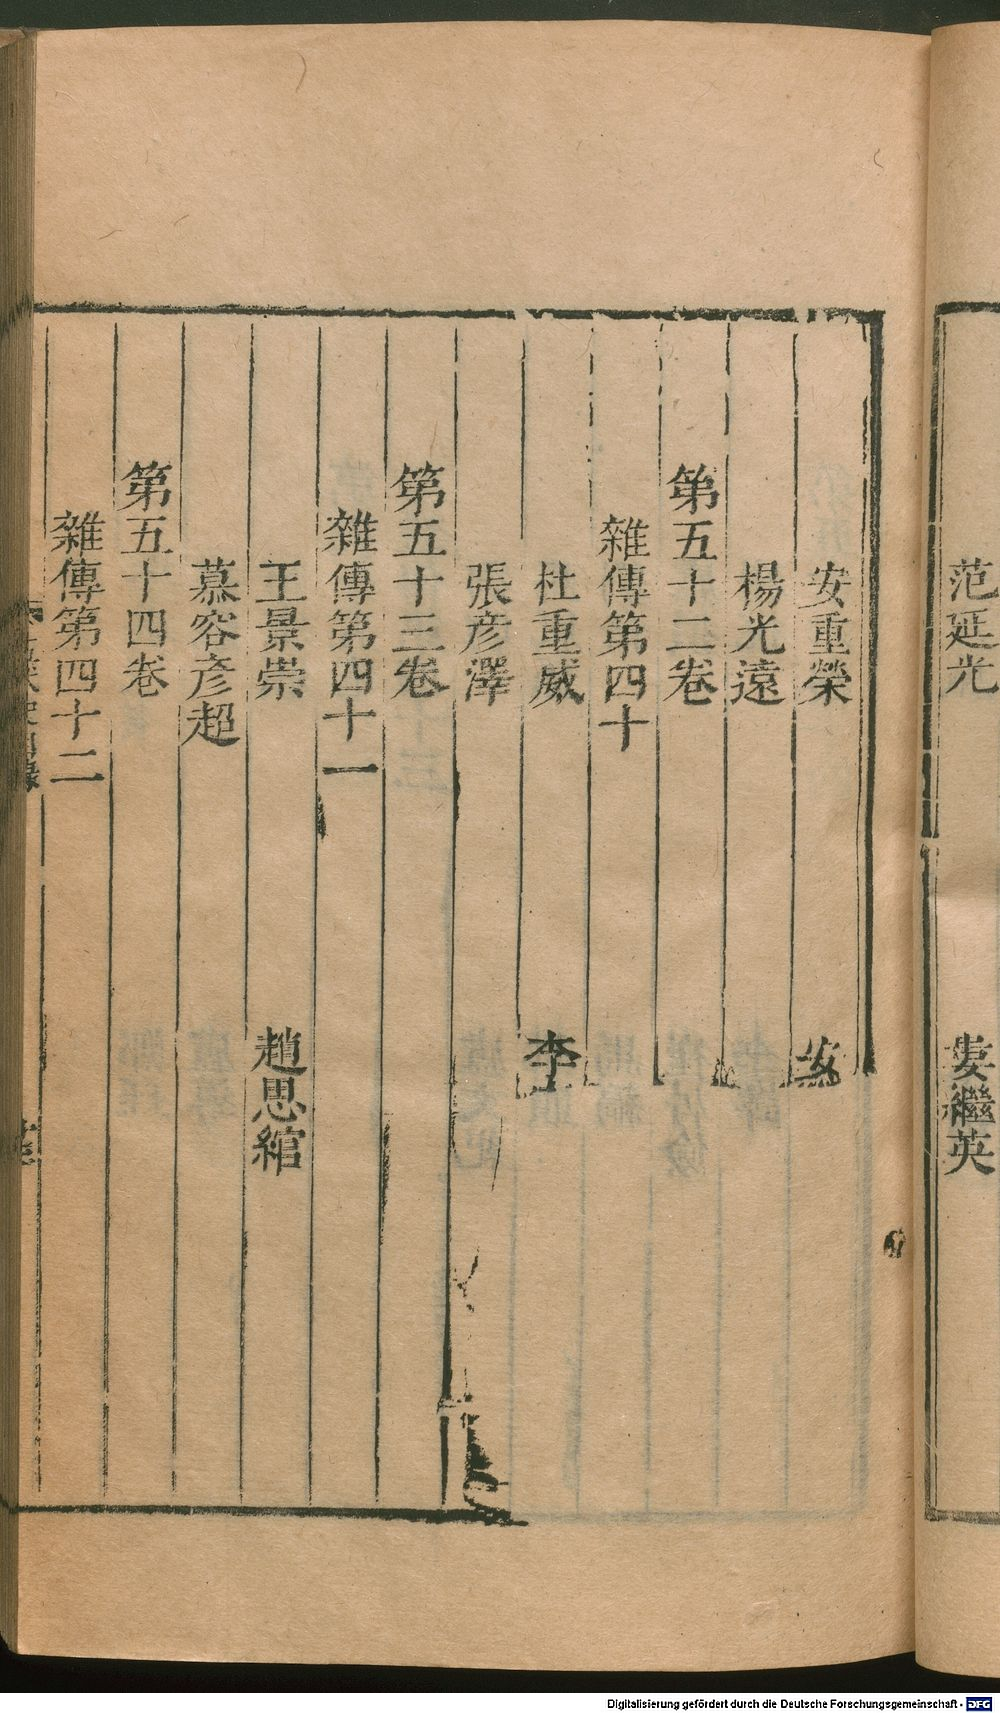 范延光 婁繼英
安重榮 安
楊光遠
第五十二卷
雜傳第四十
杜重威 李
張彦澤
第五十三卷
雜傳第四十一
王景崇 趙思綰
慕容彦超
第五十四卷
雜傳第四十二
Digitalisierung gefördert durch die Deutsche Forschungsgemeinschaft - DFG